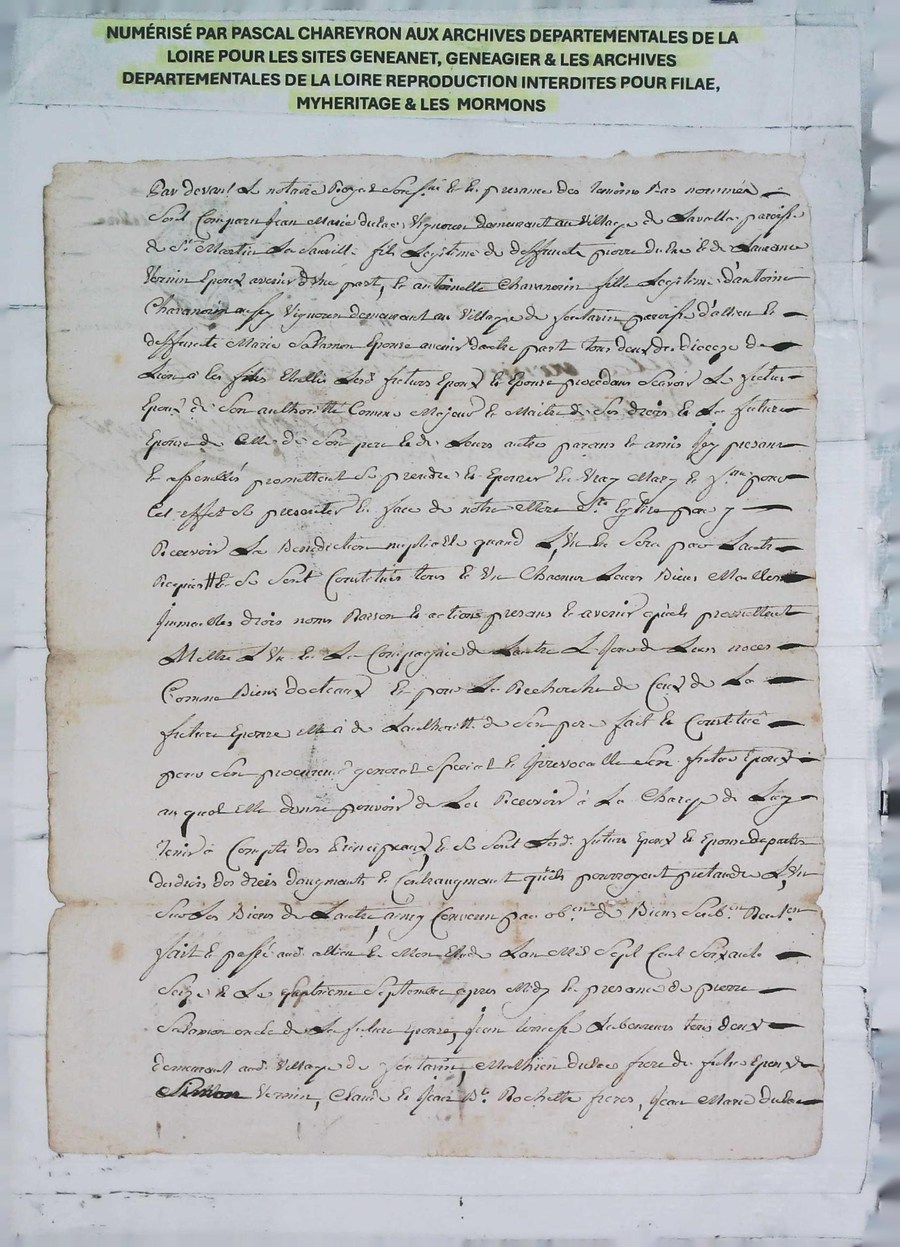 NUMÉRISÉ PAR PASCAL CHAREYRON AUX ARCHIVES DEPARTEMENTALES DE LA
LOIRE POUR LES SITES GENEANET, GENEAGIER & LES ARCHIVES
DEPARTEMENTALES DE LA LOIRE REPRODUCTION INTERDITES POUR FILAE,
MYHERITAGE & LES MORMONS
Par devant Le notaire Royal Sous.né Et En presance des Temoins Bas nommés
Sont Comparu Jean Marie dulac Vigneron demeurant au Village de Lavalla paroisse
de St Martin La Sauvité fils Legitime de deffuncte pierre dulac Et de Laurance
Vernin Epoux avenir d'Une part, Et antoinette Chavanoin fille Legitime d'antoine
Chavanoin aussy Vigneron demeurant au Village de parroisse d'allieu Et
deffuncte Marie Salamon Epouse avenir dautre part tous deux du dioceze de
Lion à Les futurs Epoux Et Epouse procedans Scavoir Le futur
Epoux de Son authorité Comme Majeur Et Maitre de Ses droits Et La future
Epouse de Celle de Son pere Et de Leurs autres parans Et amis Icy presans
Et assemblés promettent Se prendre Et Epouzer En Vray Mary Et fme pour
Cet effet Se presenter En face de notre Mere Ste Eglise pour y
Recevoir La Benediction nuptialle quand L'Un En Sera par Lautre
Requis Et Se Sont Constitués tous Et Un Chacuns Leurs Biens Meubles
Immeubles droits noms Raison Et actions presans Et avenir qu'ils promettent
Mettre L'Un En La Compagnie de Lautre Le Jour de Leurs noces
Comme Biens docteaux Et pour La Recherche de Ceux de La
future Epouze Elle à de Lauthorité de Son pere fait Et Constitué
pour Son procureur general Special Et Irrevocalle Son futur Epoux
au quel Elle donne pouvoir de Les Recevoir à La Charge de Luy
Tenir à Compte des Principaux, Et Se Sont Lesd. futurs Epoux Et Epouse
des droits daugments Et Contraugment qu'ils pourroyent pretandre L'Un
Sur Les Biens de Lautre, ainsy Convenu par ob.on de Biens
fait Et passé aud. allieu En Mon Etude Lan Mil Sept Cent Soixante
Seize Et Le quatrieme Septembre apres Midy En presance de pierre
Salamon oncle de La future Epouze, Jean Laboureurs tous deux
demeurant aud. Village de Mathieu dulac frere du futur Epoux
Vernin, Claude Et Jean Bte Rochette freres, Jean Marie dulac